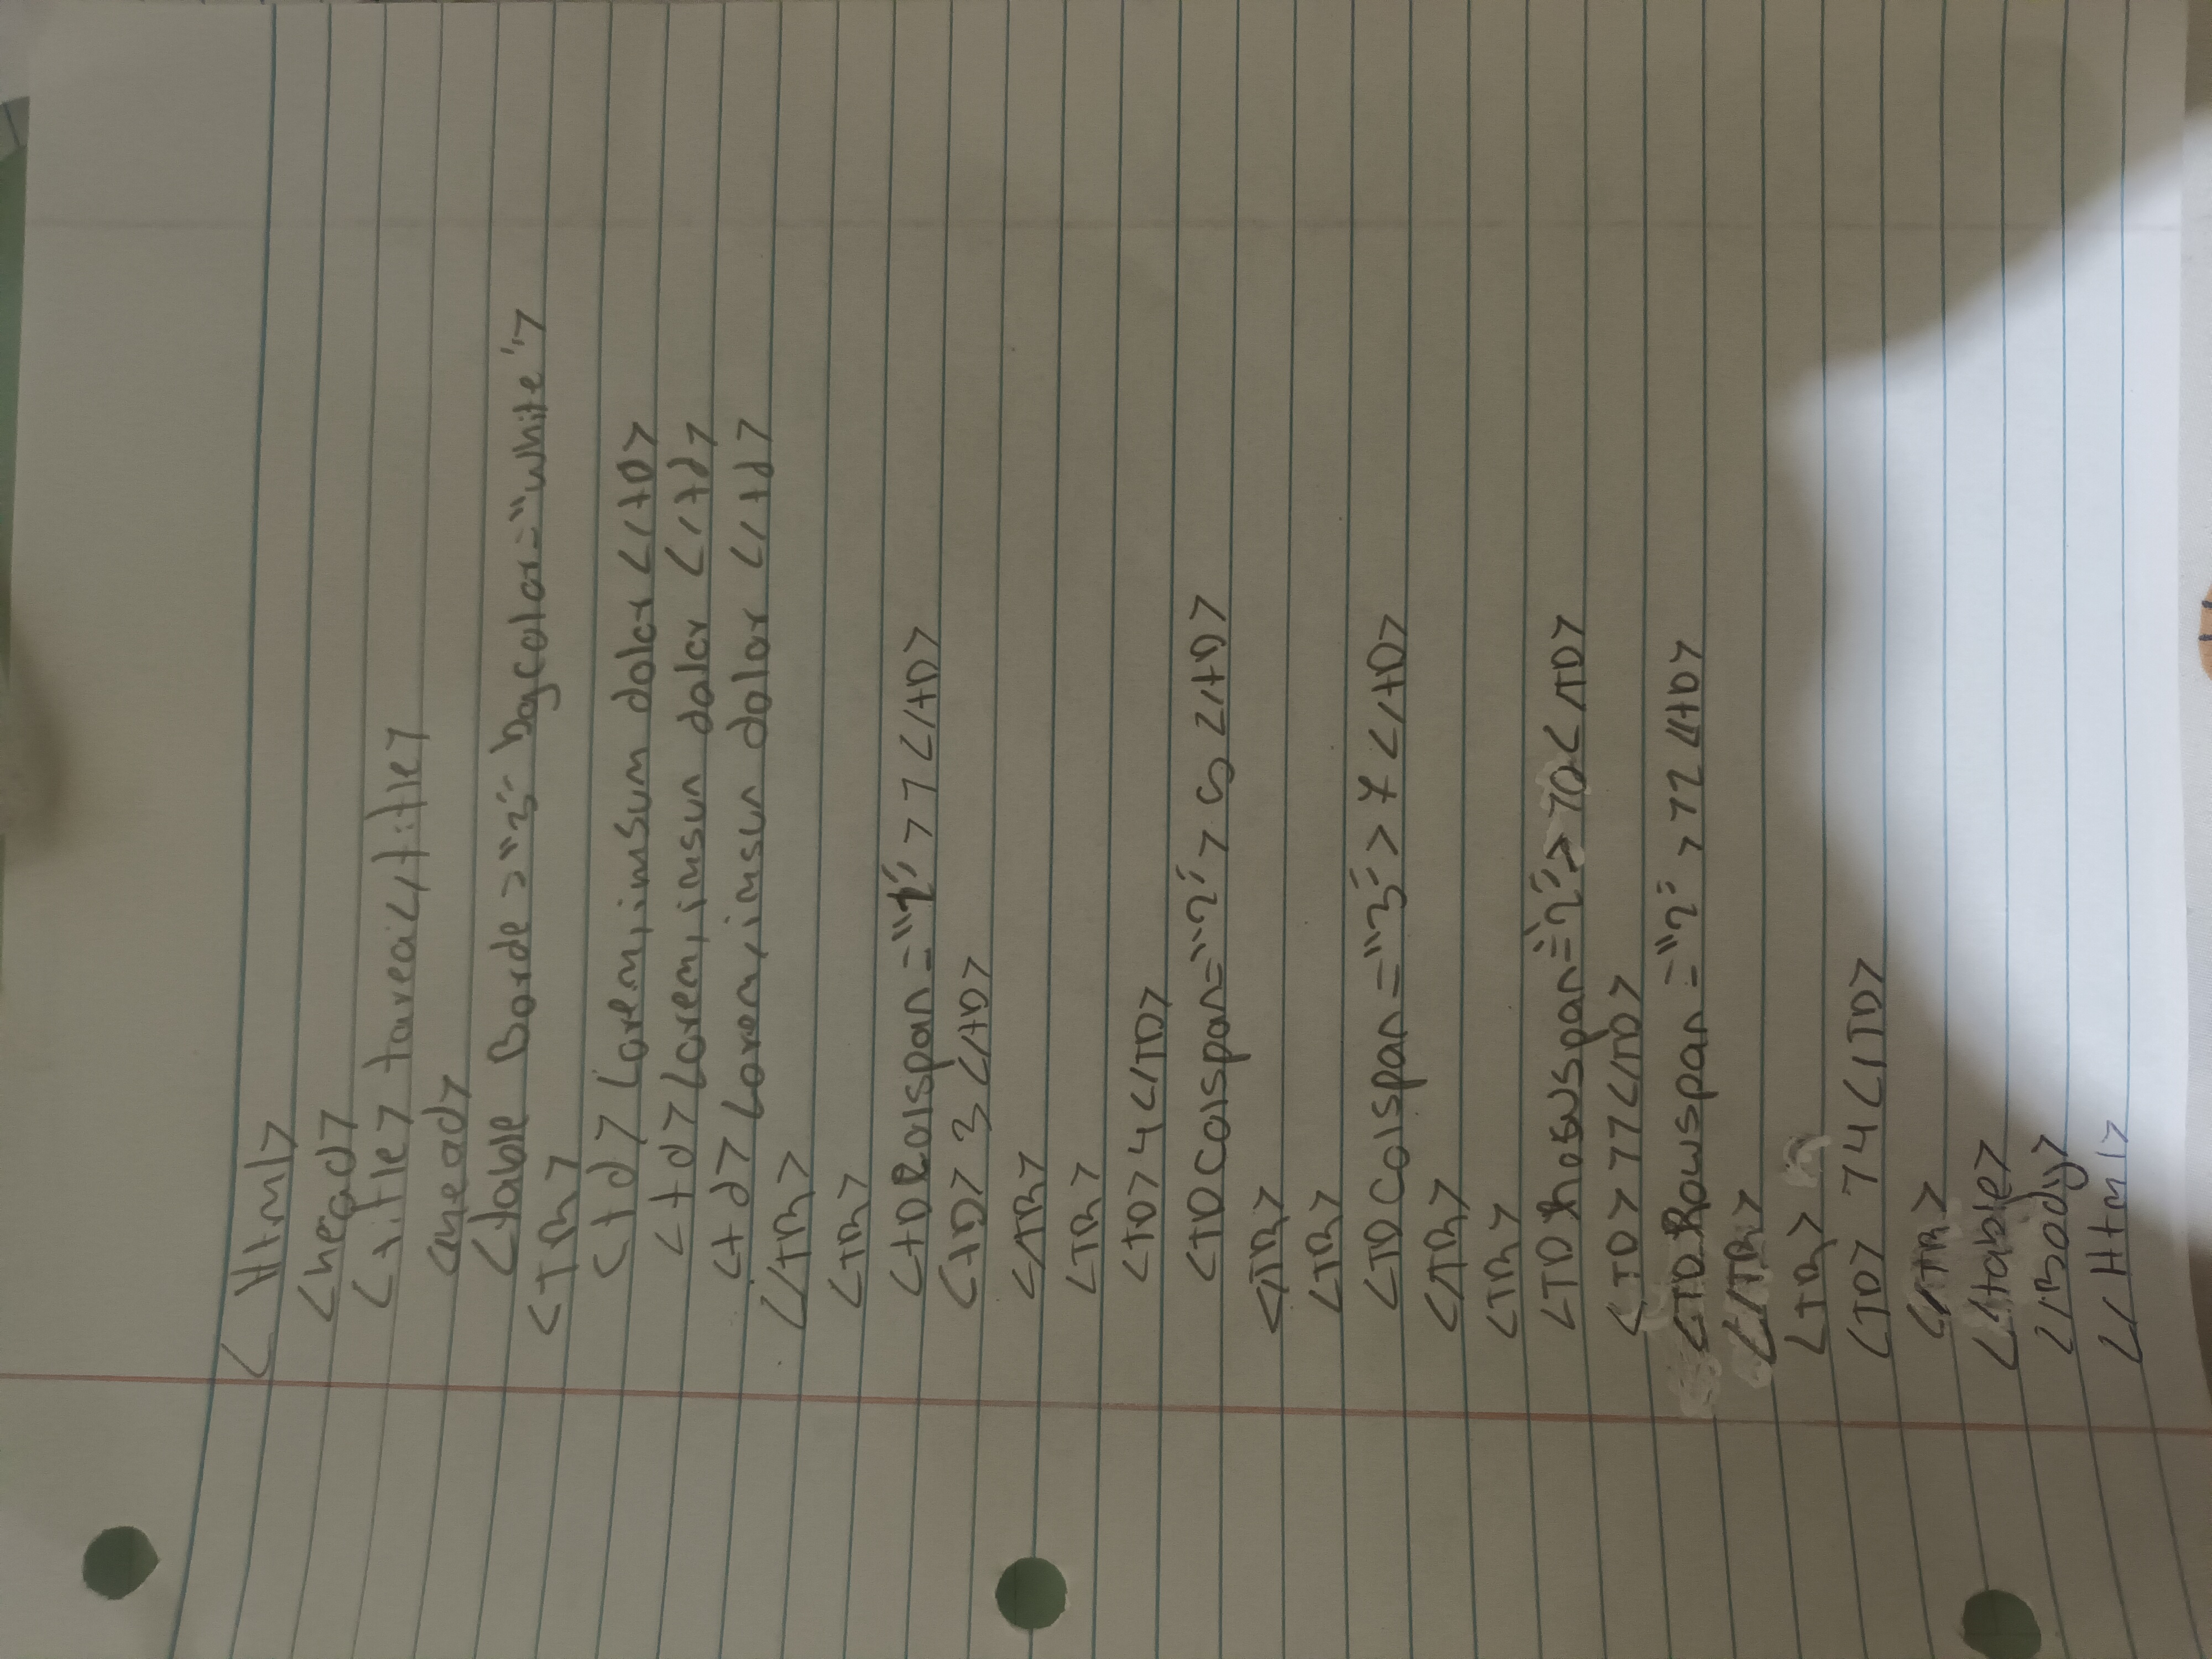 < Html>
<head>
<title> tarea</title>
</head>
<table Borde="3" bgcolor="white">
<TR>
<td> Lorem,imsum dolor </tD>
<td> Lorem,imsun dolor </td>
<td> Lorem,imsun dolor </td>
</TR>
<TR>
<tD Colspan="2"> 1 </tD>
<tD> 3 </tD>
</TR>
<TR>
<TD> 4 </TD>
<TD Colspan="2"> 5 </tD>
</TR>
<TR>
<TD Colspan="3"> 7 </tD>
</TR>
<TR>
<TD Rowspan="2"> 10 </TD>
<TD> 11 </TD>
<TD Rowspan="2"> 12 </tD>
</TR>
<TR>
<TD> 14 </TD>
</TR>
</table>
</Body>
</ Html>